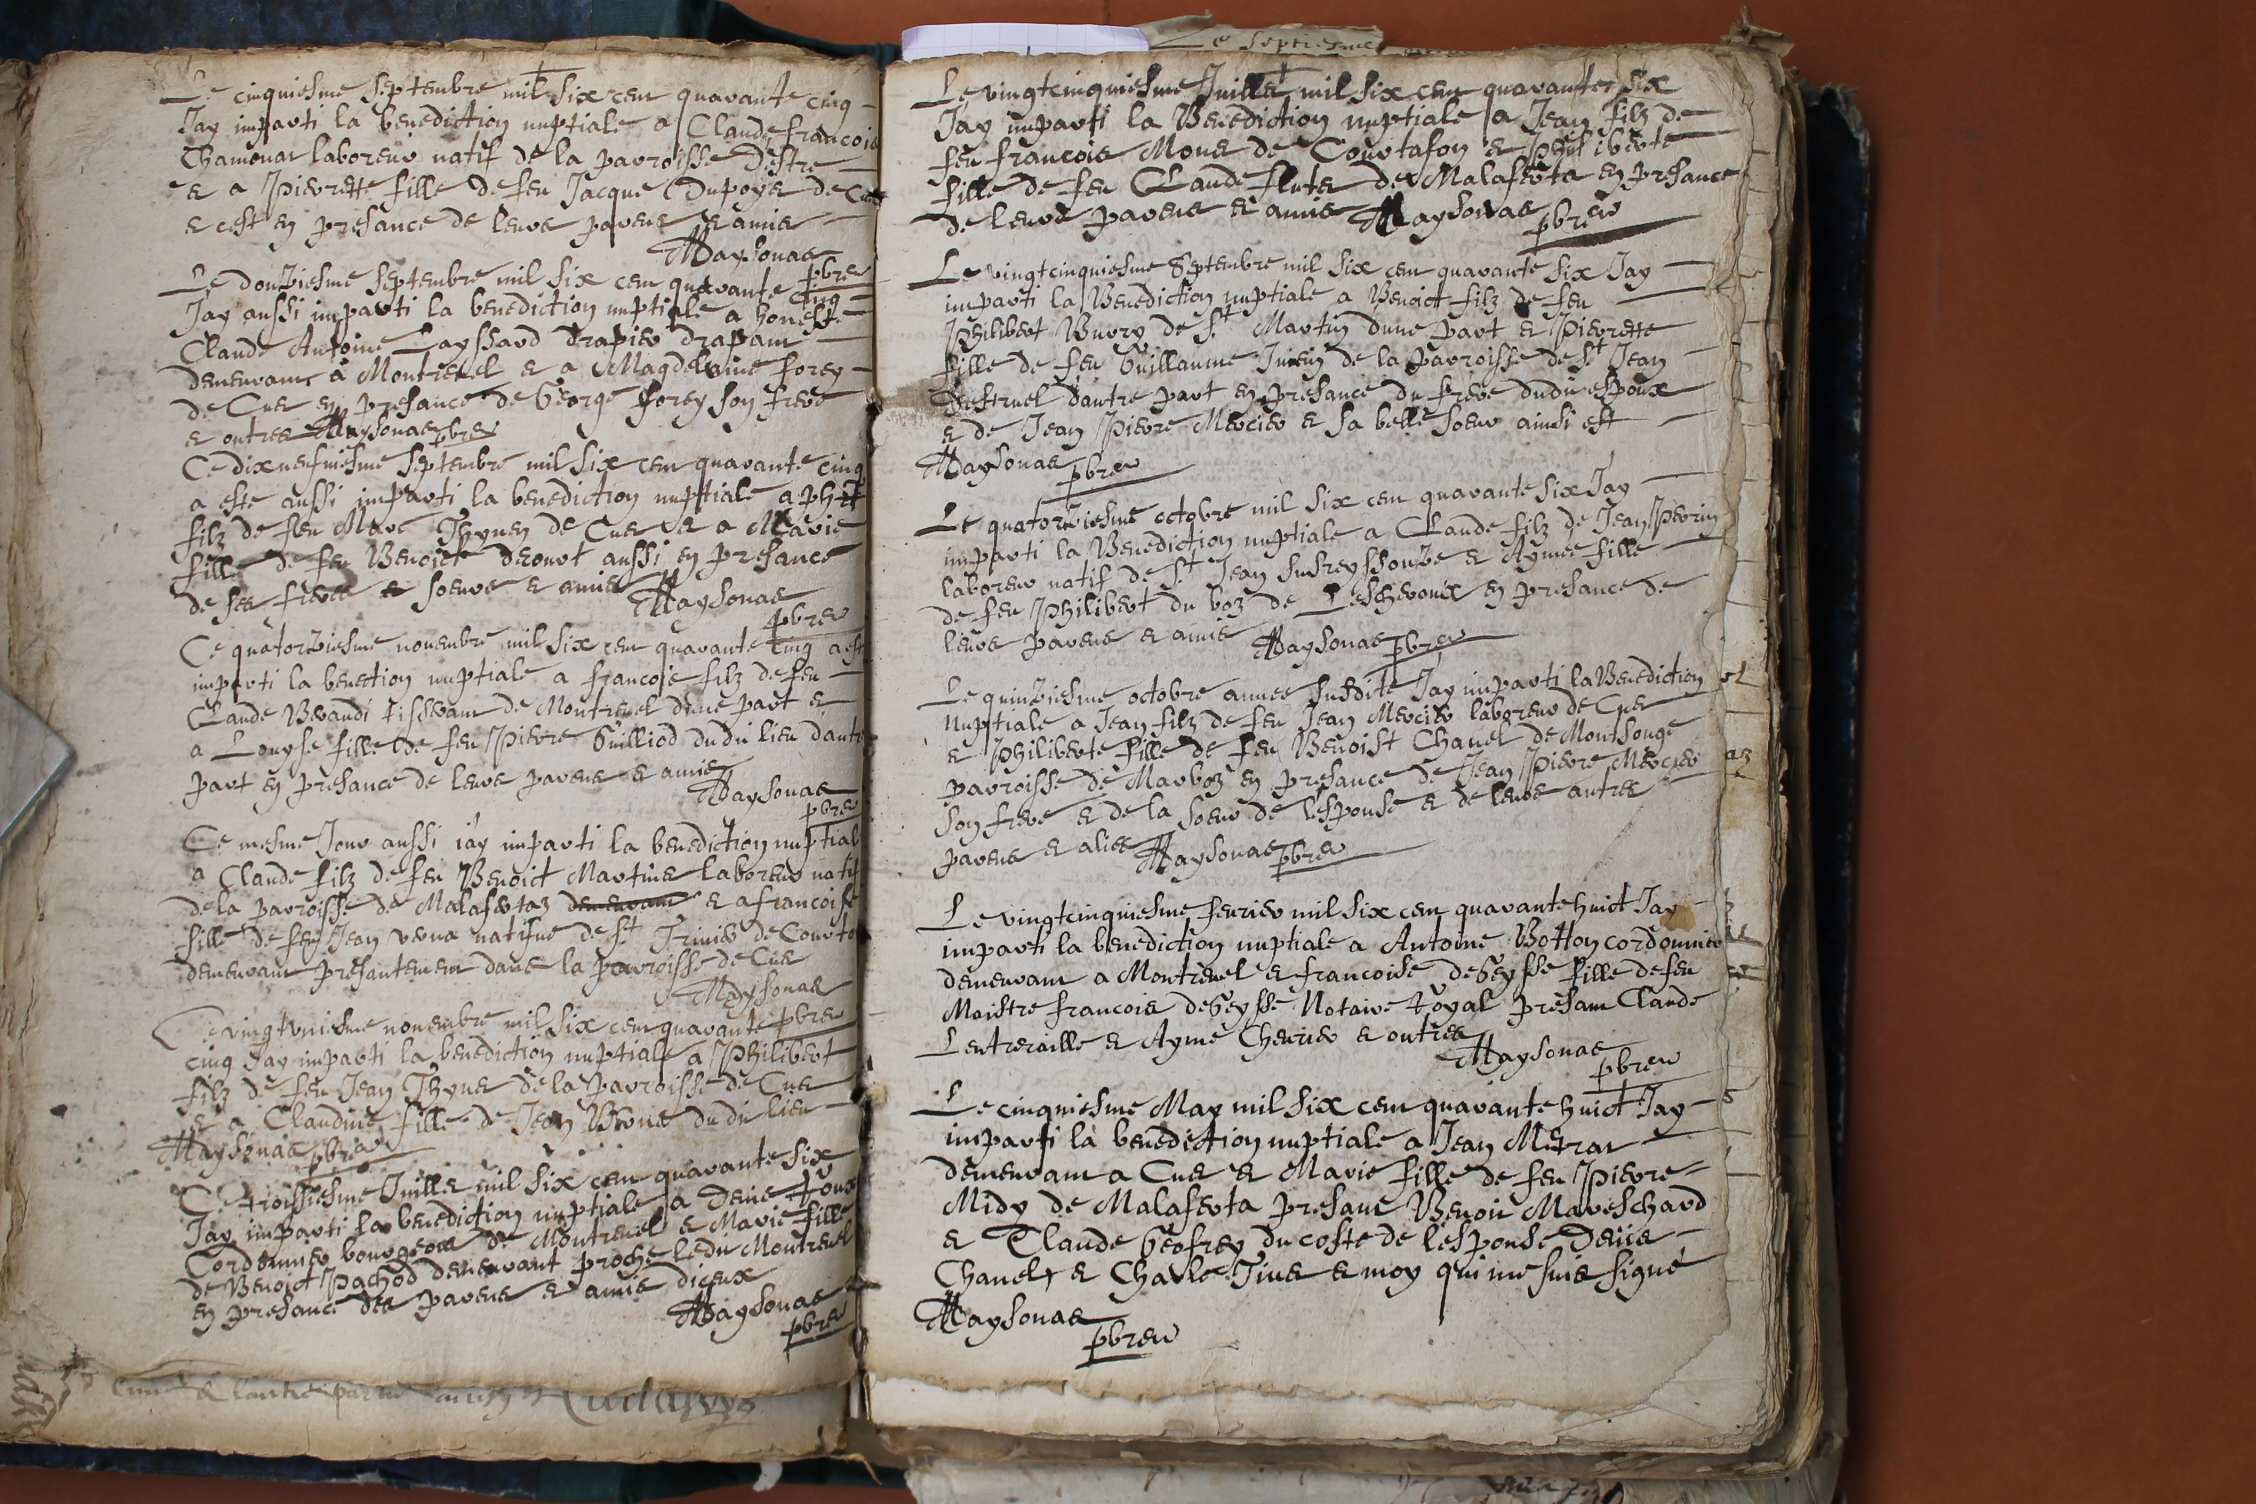 Le cinquiesme septembre mil six cent quarante cinq
Jay imparti la benediction nuptiale a Claude francois
laboreur natif de la parroisse Destre
et a Pierrette fille de feu Jacque Dupoys de Cuet
et cest en presance de leurs parens et amis
Maysonas
pbre
Le douziesme septembre mil six cent quarante cinq
Jay aussi imparti la benediction nuptiale a honeste
Claude Antoine Layssard drapier drapant
demeurant a Montrevel et a Magdelaine forey
de Cuet en presance de George forey son frere
et outres Maysonas pbre
Ce dixneufviesme septembre mil six cent quarante cinq
a este aussi imparti la benediction nuptiale a
filz de feu Marc Thynen de Cuet et a Marie
fille de feu Benoict aussi en presance
de ses freres et soeurs et amis Maysonas
pbre
Ce quatorziesme novembre mil six cent quarante cinq a est
imparti la benection nuptiale a francois filz de feu
Claude Berandi tisserant de Montrevel dune part et
a Louyse fille de feu Pierre Guilliod dudit lieu dautre
part en presance de leurs parens et amis
Maysonas
pbre
Ce mesme Jour aussi iay imparti la benediction nuptial
a Claude filz de feu Benoict Martin laboreur natif
de la parroisse de Malafertaz demeurant et a francoise
fille de feu Jean natifve de St Trivier de Courto
demeurant presantement dans la parroisse de Cuet
Maysonas
pbre
Ce vingt uniesme novembre mil six cent quarante
cinq Jay imparti la benediction nuptiale a Philibert
filz de feu Jean Thynet de la parroisse de Cuet
et a Claudine fille de Jean dudit lieu
Maysonas pbre
Ce troissiesme Juillet mil six cent quarante six
Jay imparti la benediction nuptiale a Denis Roux
Cordonnier bourgeois de Montrevel et Marie fille
de Benoict Pachod demeurant proche ledit Montrevel
en presance des parens et amis diceux
Maysonas
pbre
Le vingtcinquiesme Juillet mil six cent quarante six
Jay imparti la Benediction nuptiale a Jean filz de
feu francois Mone de Courtafon et Philiberte
fille de feu Claude flutet de Malaferta en presance
de leurs parens et amis Maysonas pbre
Le vingtcinquiesme Septembre mil six cent quarante six Jay
imparti la Benediction nuptiale a Benoict filz de feu
Philibert Burry de St Martin dune part et Pierrette
fille de feu Guillaume de la parroisse de St Jean
Destruel dautre part en presance du frere dudit espoux
et de Jean Pierre Mercier et sa belle soeur ainsi est
Maysonas pbre
Le quatorziesme octobre mil six cent quarante six Jay
imparti la Benediction nuptiale a Claude filz de Jean Perrin
laboreur natif de St Jean sus reyssouze et Aymee fille
de feu Philibert du boz de Lescheroux en presance de
leurs parens et amis Maysonas pbre
Le quinziesme octobre annee susdite Jay imparti la Benediction
Nuptiale a Jean filz de feu Jean Mercier laboreur de Cuet
et Philiberte fille de feu Benoist Chanel de Montsonge
parroisse de Marboz en presance de Jean Pierre Mercier
son frere et de la soeur de lesponse et de leurs autres
parens et alies Maysonas pbre
Le vingtcinquiesme fevrier mil six cent quarante huict Jay
imparti la benediction nuptiale a Antoine Botton cordonnier
demeurant a Montrevel et francoise deGeysse fille de feu
Maistre francois deGeysse Notaire Royal presant Claude
Lentreraille et Ayme Chevrier et outres
Maysonas
pbre
Le cinquiesme May mil six cent quarante huict Jay
imparti la benediction nuptiale a Jean Metrat
demeurant a Cuet et Marie fille de feu Pierre
Midy de Malaferta presant Benoit Mareschard
et Claude Geofrey du coste de lesponse Denis
Chanel et Charle Tiuet et moy qui me suis signé
Maysonas
pbre